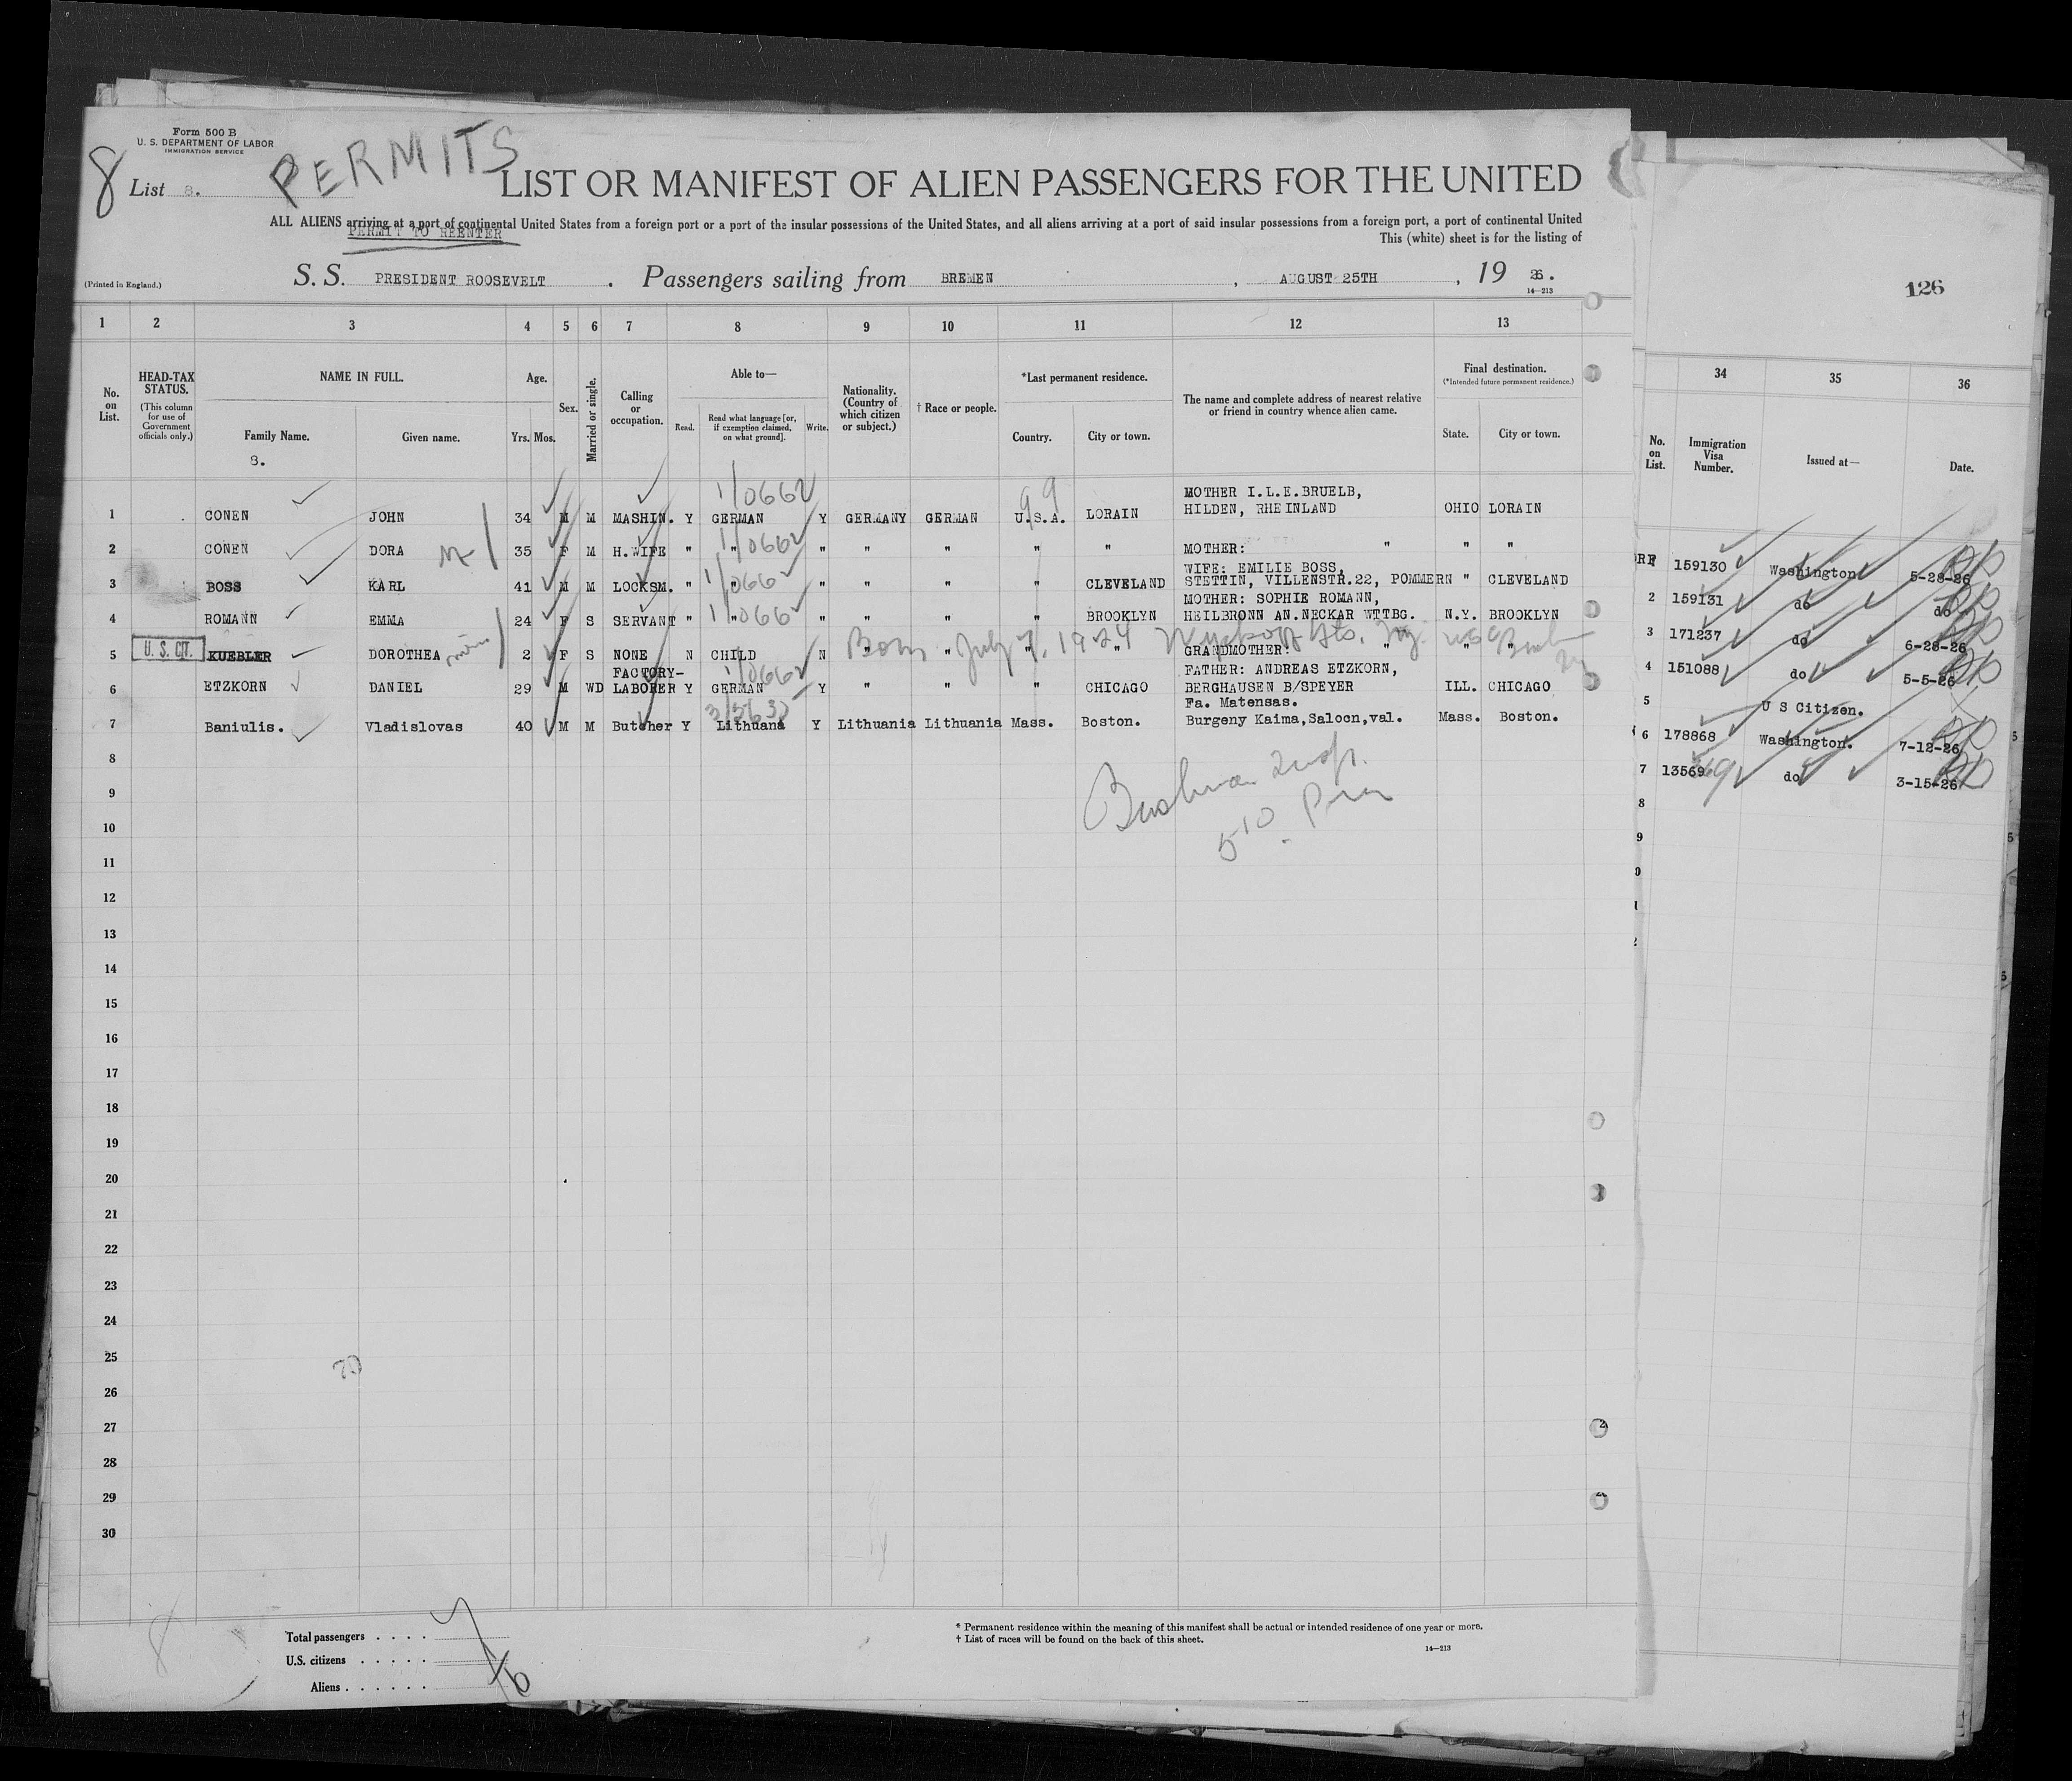 Form 500 B
U. S. DEPARTMENT OF LABOR
IMMIGRATION SERVICE
8 List 8.
PERMITS
LIST OR MANIFEST OF ALIEN PASSENGERS FOR THE UNITED
ALL ALIENS arriving at a port of continental United States from a foreign port or a port of the insular possessions of the United States, and all aliens arriving at a port of said insular possessions from a foreign port, a port of continental United
PERMIT TO REENTER
This (white) sheet is for the listing of
(Printed in England.)
S. S. PRESIDENT ROOSEVELT . Passengers sailing from BREMEN , AUGUST 25TH , 19 26.
14—213
126
1 2 3 4 5 6 7 8 9 10 11 12 13
34 35 36
No. on List.
HEAD-TAX STATUS.
(This column for use of Government officials only.)
NAME IN FULL.
Family Name.
Given name.
8.
Age.
Yrs. Mos.
Sex.
Married or single.
Calling or occupation.
Able to—
Read.
Read what language [or, if exemption claimed, on what ground].
Write.
Nationality. (Country of which citizen or subject.)
† Race or people.
*Last permanent residence.
Country.
City or town.
The name and complete address of nearest relative or friend in country whence alien came.
Final destination.
(*Intended future permanent residence.)
State.
City or town.
No. on List.
Immigration Visa Number.
Issued at—
Date.
1/0662
99
MOTHER I.L.E.BRUELB,
1 CONEN JOHN 34 M M MASHIN. Y GERMAN Y GERMANY GERMAN U.S.A. LORAIN HILDEN, RHEINLAND OHIO LORAIN
1/0662
2 CONEN DORA 35 F M H.WIFE " " " " " " " MOTHER: " " "
1/066
WIFE: EMILIE BOSS,
3 BOSS KARL 41 M M LOCKSM. " " " " " " CLEVELAND STETTIN, VILLENSTR.22, POMMERN " CLEVELAND
1/066
MOTHER: SOPHIE ROMANN,
4 ROMANN EMMA 24 F S SERVANT " " " " " " BROOKLYN HEILBRONN AN.NECKAR WTTBG. N.Y. BROOKLYN
Born July 7, 1924 Wyckoff Hts.
U. S. CIT.
5 KUEBLER DOROTHEA 2 F S NONE N CHILD N " " " " GRANDMOTHER: " " "
FACTORY-
1/0662
FATHER: ANDREAS ETZKORN,
6 ETZKORN DANIEL 29 M WD LABORER Y GERMAN Y " " " CHICAGO BERGHAUSEN B/SPEYER ILL. CHICAGO
Fa. Matensas.
7 Baniulis. Vladislovas 40 M M Butcher Y Lithuana Y Lithuania Lithuania Mass. Boston. Burgeny Kaima,Salocn,val. Mass. Boston.
159130 Washington 5-28-26
2 159131 do do
3 171237 do 6-28-26
4 151088 do 5-5-26
5 U S Citizen.
6 178868 Washington. 7-12-26
7 13569 do 3-15-26
8
9
8
9
10
11
12
13
14
15
16
17
18
19
20
21
22
23
24
25
26
27
28
29
30
Total passengers . . . . 7
U.S. citizens . . . . . 1
Aliens . . . . . . 6
* Permanent residence within the meaning of this manifest shall be actual or intended residence of one year or more.
† List of races will be found on the back of this sheet.
14—213